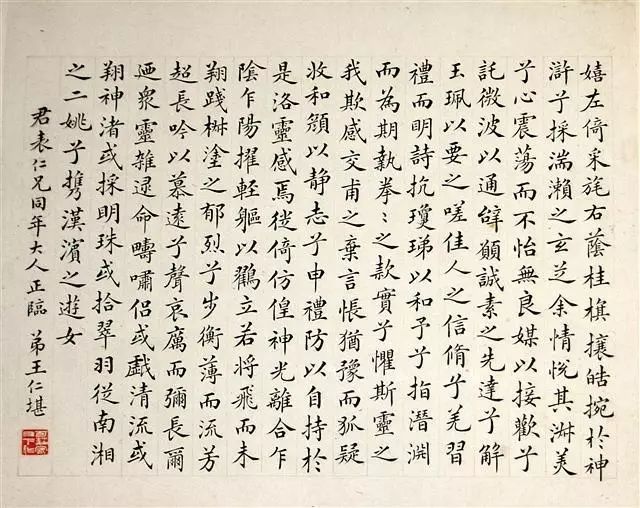 嬉左倚采旄右蔭桂旗攘皓捥於神
滸兮採湍瀨之玄芝余情悅其淑美
兮心震蕩而不怡無良媒以接歡兮
託微波以通辭願誠素之先達兮解
玉珮以要之嗟佳人之信脩兮羌習
禮而明詩抗瓊珶以和予兮指潛淵
而為期執拳〻之款實兮懼斯靈之
我欺感交甫之棄言悵猶豫而狐疑
收和顏以静志兮申禮防以自持於
是洛靈感焉徙倚仿偟神光離合乍
陰乍陽擢輕軀以鸖立若將飛而未
翔踐椒塗之郁烈兮步衡薄而流芳
超長吟以慕遠兮聲哀厲而彌長爾
迺衆靈雜遝命疇嘯侶或戲清流或
翔神渚或採明珠或拾翠羽從南湘
之二姚兮攜漢濱之遊女
君表仁兄同年大人正臨 弟王仁堪